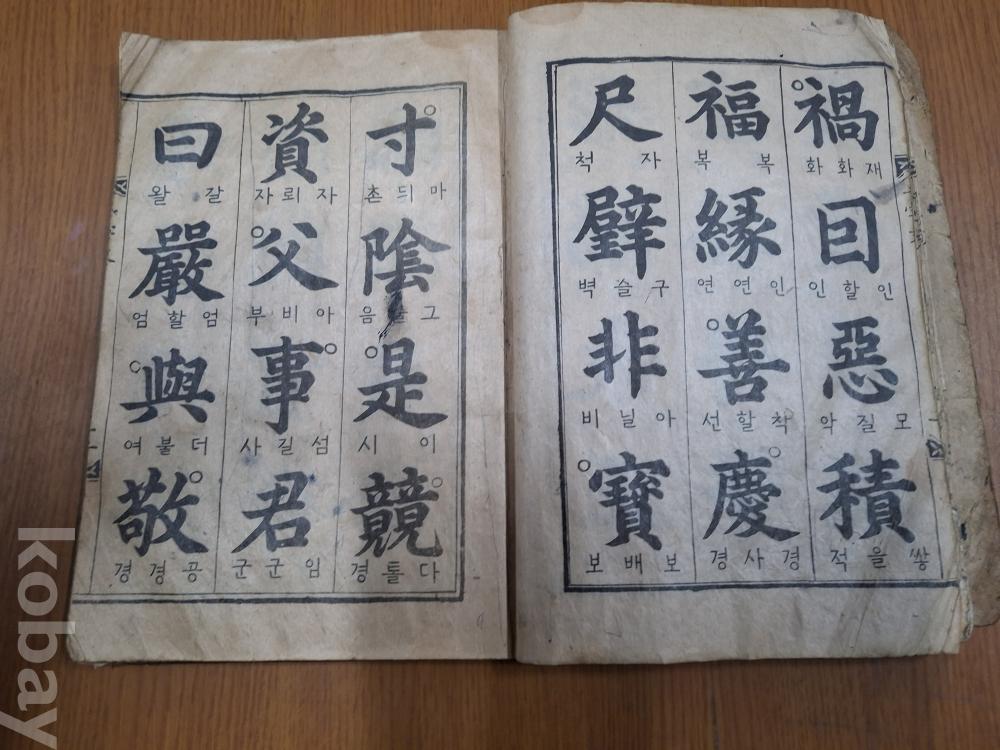 禍
재화화
囙
인할인
惡
모질악
積
쌍을적
福
복복
緣
인연연
善
착할선
慶
경사경
尺
자척
璧
구슬벽
非
아닐비
寶
보배보
寸
마듸촌
陰
그늘음
是
이시
競
다톨경
資
자뢰자
父
아비부
事
섬길사
君
임군군
曰
갈왈
嚴
엄할엄
與
더불여
敬
공경경
kobay